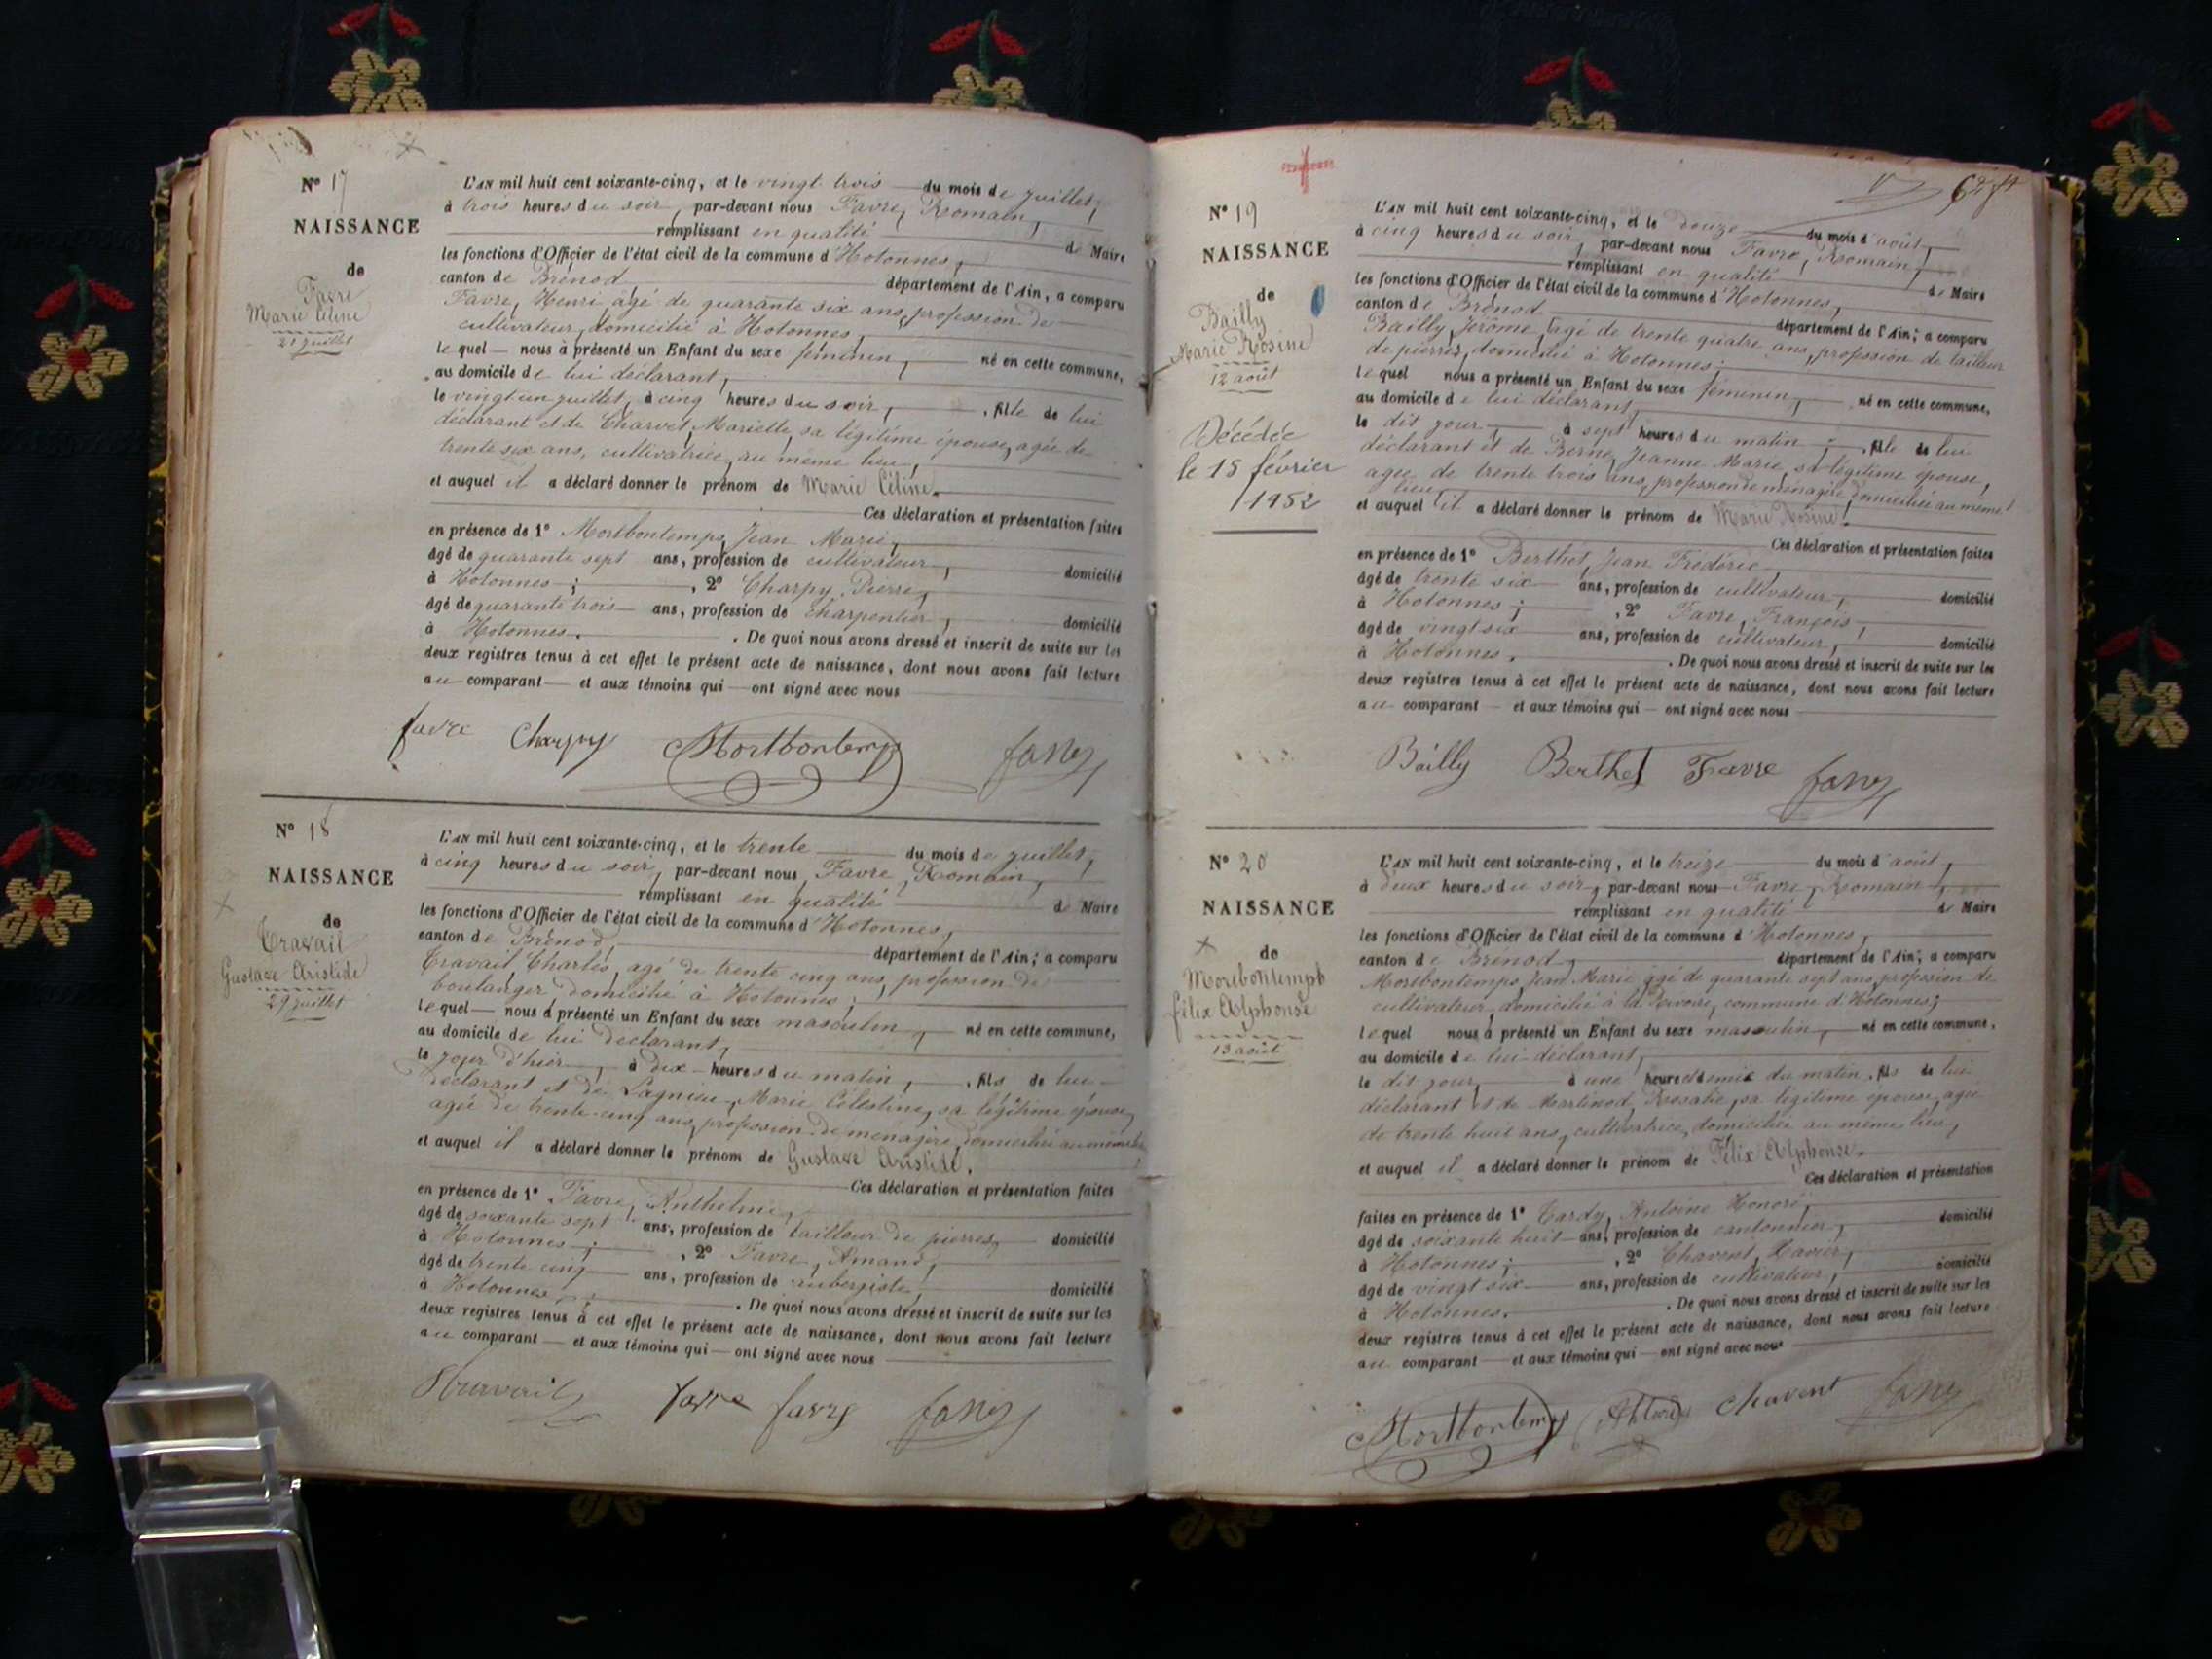 N° 17
NAISSANCE
de
Favre
Marie Céline
21 juillet
L'AN mil huit cent soixante-cinq, et le vingt trois du mois de juillet,
à trois heures du soir, par-devant nous Favre, Romain,
remplissant en qualité de Maire
les fonctions d'Officier de l'état civil de la commune d'Hotonnes,
canton de Brénod département de l'Ain, a comparu
Favre, Henri, agé de quarante six ans, profession de
cultivateur, domicilié à Hotonnes,
lequel nous à présenté un Enfant du sexe féminin, né en cette commune,
au domicile de lui déclarant,
le vingt un juillet, à cinq heures du soir, fille de lui
déclarant et de Charvet, Mariette, sa légitime épouse, agée de
trente six ans, cultivatrice, au même lieu,
et auquel il a déclaré donner le prénom de Marie Céline.
Ces déclaration et présentation faites
en présence de 1° Mortbontemps, Jean Marie,
âgé de quarante sept ans, profession de cultivateur, domicilié
à Hotonnes ; , 2° Charpy, Pierre,
âgé de quarante trois ans, profession de charpentier, domicilié
à Hotonnes. . De quoi nous avons dressé et inscrit de suite sur les
deux registres tenus à cet effet le présent acte de naissance, dont nous avons fait lecture
au comparant et aux témoins qui ont signé avec nous
favre Charpy Mortbontemps favre
N° 18
NAISSANCE
de
Travail
Gustave Aristide
29 juillet
L'AN mil huit cent soixante-cinq, et le trente du mois de juillet,
à cinq heures du soir, par-devant nous Favre, Romain,
remplissant en qualité de Maire
les fonctions d'Officier de l'état civil de la commune d'Hotonnes,
canton de Brénod, département de l'Ain; a comparu
Travail, Charles, agé de trente cinq ans, profession de
boulanger domicilié à Hotonnes ;
lequel nous à présenté un Enfant du sexe masculin, né en cette commune,
au domicile de lui déclarant,
le jour d'hier, à dix heures du matin, , fils de lui
déclarant et de Lagnieu, Marie Célestine, sa légitime épouse,
agée de trente-cinq ans, profession de ménagère, domiciliée au même lieu,
et auquel il a déclaré donner le prénom de Gustave Aristide.
Ces déclaration et présentation faites
en présence de 1° Favre, Anthelme,
âgé de soixante sept ans, profession de tailleur de pierres, domicilié
à Hotonnes ; , 2° Favre, Amand,
âgé de trente cinq ans, profession de aubergiste, domicilié
à Hotonnes . De quoi nous avons dressé et inscrit de suite sur les
deux registres tenus à cet effet le présent acte de naissance, dont nous avons fait lecture
au comparant et aux témoins qui ont signé avec nous
Travail favre favre favre
N° 19
NAISSANCE
de
Bailly
Marie Rosine
12 août
Décédée
le 15 février
1952
L'AN mil huit cent soixante-cinq, et le douze du mois d'août,
à cinq heures du soir, par-devant nous Favre, Romain,
remplissant en qualité de Maire
les fonctions d'Officier de l'état civil de la commune d'Hotonnes,
canton de Brénod département de l'Ain; a comparu
Bailly, Jérôme, agé de trente quatre ans, profession de tailleur
de pierres, domicilié à Hotonnes ;
lequel nous a présenté un Enfant du sexe féminin, né en cette commune,
au domicile de lui déclarant,
le dit jour, à sept heures du matin ; , fille de lui
déclarant et de Berne, Jeanne Marie, sa légitime épouse,
agée de trente trois ans, profession de ménagère, domiciliée au même
lieu
et auquel il a déclaré donner le prénom de Marie Rosine.
Ces déclaration et présentation faites
en présence de 1° Berthet, Jean Frédéric,
âgé de trente six ans, profession de cultivateur, domicilié
à Hotonnes ; , 2° Favre, François,
âgé de vingt six ans, profession de cultivateur, domicilié
à Hotonnes. . De quoi nous avons dressé et inscrit de suite sur les
deux registres tenus à cet effet le présent acte de naissance, dont nous avons fait lecture
au comparant et aux témoins qui ont signé avec nous
Bailly Berthet Favre favre
N° 20
NAISSANCE
de
Mortbontemps
félix Alphonse
13 août
L'AN mil huit cent soixante-cinq, et le treize du mois d'août,
à deux heures du soir, par-devant nous Favre, Romain,
remplissant en qualité de Maire
les fonctions d'Officier de l'état civil de la commune d'Hotonnes,
canton de Brénod, département de l'Ain, a comparu
Mortbontemps, Jean Marie, âgé de quarante sept ans, profession de
cultivateur, domicilié à la Rivoire, commune d'Hotonnes ;
lequel nous à présenté un Enfant du sexe masculin, né en cette commune,
au domicile de lui déclarant,
le dit jour, à une heure et demie du matin, fils de lui
déclarant et de Martinod, Rosalie, sa légitime épouse, agée
de trente huit ans, cultivatrice, domiciliée au même lieu,
et auquel il a déclaré donner le prénom de Félix Alphonse.
Ces déclaration et présentation
faites en présence de 1° Tardy, Antoine Honoré, domicilié
âgé de soixante huit ans, profession de cantonnier,
à Hotonnes ; , 2° Chavent, Xavier, domicilié
âgé de vingt six ans, profession de cultivateur,
à Hotonnes. . De quoi nous avons dressé et inscrit de suite sur les
deux registres tenus à cet effet le présent acte de naissance, dont nous avons fait lecture
au comparant et aux témoins qui ont signé avec nous
Mortbontemps Chavent favre